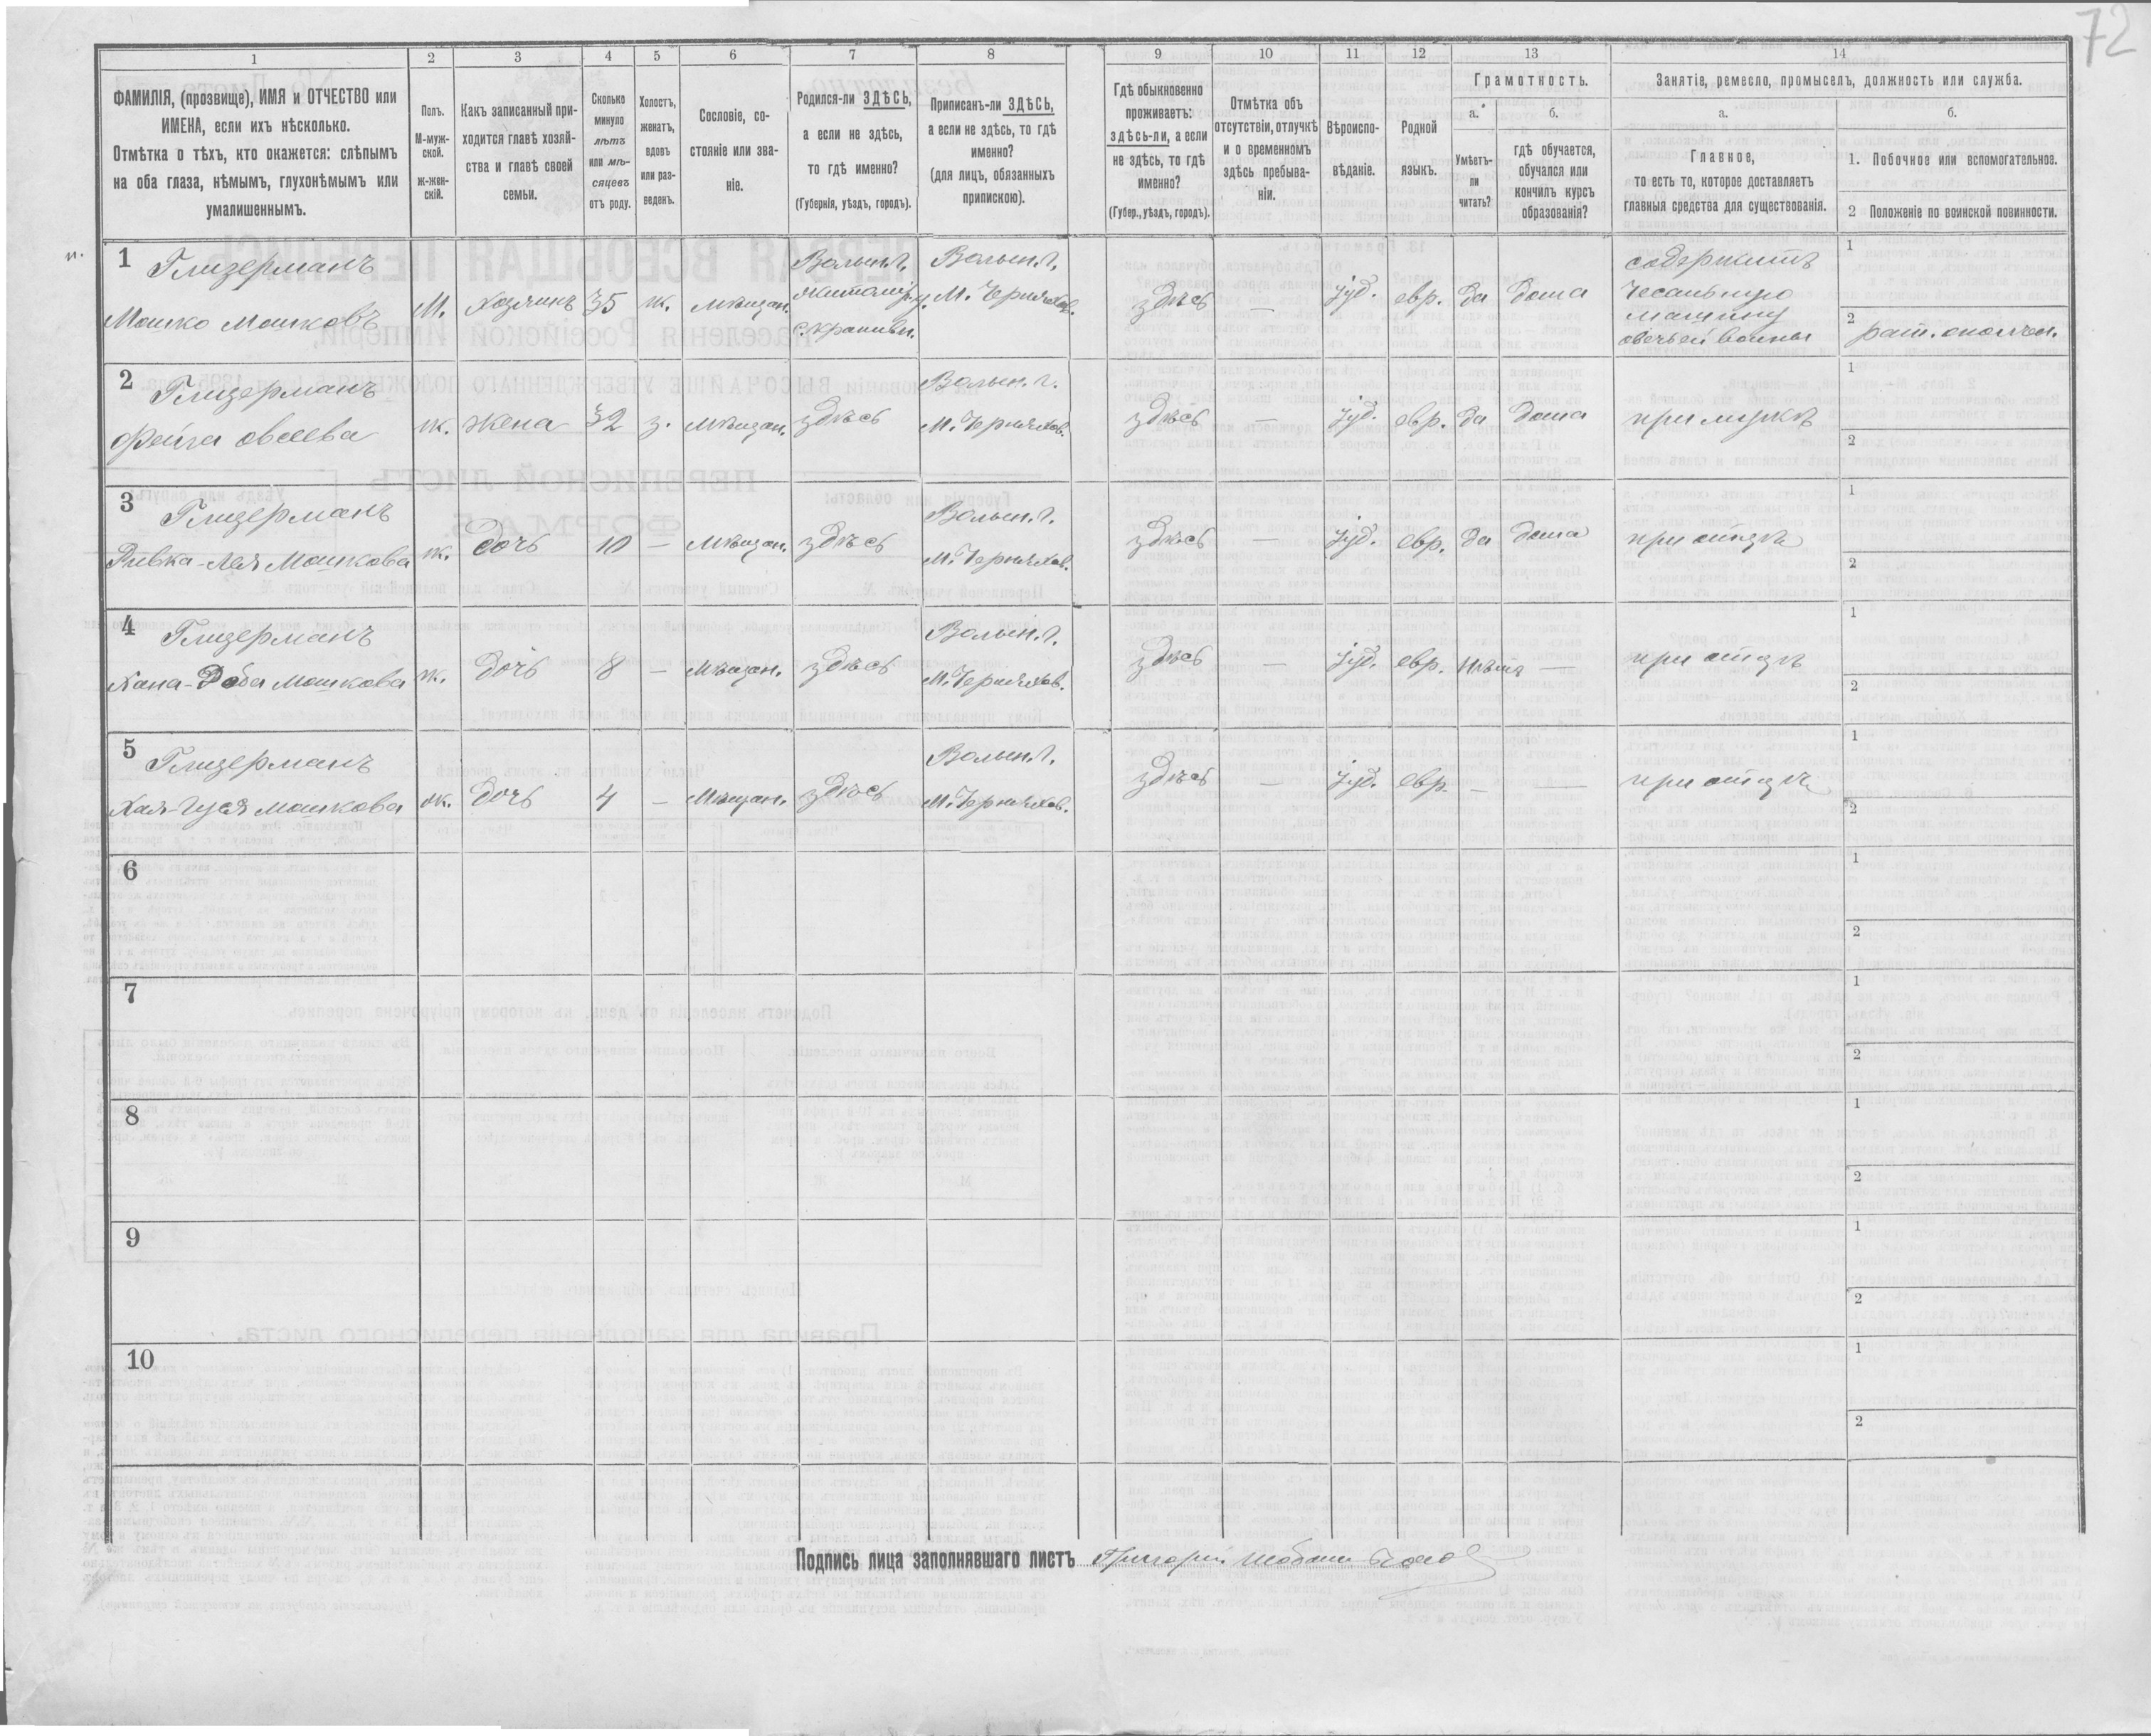 72
1 2 3 4 5 6 7 8 9 10 11 12 13 14
ФАМИЛІЯ, (прозвище), ИМЯ и ОТЧЕСТВО или
ИМЕНА, если ихъ нѣсколько.
Отмѣтка о тѣхъ, кто окажется: слѣпымъ
на оба глаза, нѣмымъ, глухонѣмымъ или
умалишеннымъ.
Полъ.
М-муж-
ской.
ж-жен-
скій.
Какъ записанный при-
ходится главѣ хозяй-
ства и главѣ своей
семьи.
Сколько
минуло
лѣтъ
или мѣ-
сяцевъ
отъ роду.
Холостъ,
женатъ,
вдовъ
или раз-
веденъ.
Сословіе, со-
стояніе или зва-
ніе.
Родился-ли ЗДѢСЬ,
а если не здѣсь,
то гдѣ именно?
(Губернія, уѣздъ, городъ).
Приписанъ-ли ЗДѢСЬ,
а если не здѣсь, то гдѣ
именно?
(для лицъ, обязанныхъ
припискою).
Гдѣ обыкновенно
проживаетъ:
здѣсь-ли, а если
не здѣсь, то гдѣ
именно?
(Губер., уѣздъ, городъ).
Отмѣтка объ
отсутствіи, отлучкѣ
и о временномъ
здѣсь пребыва-
ніи.
Вѣроиспо-
вѣданіе.
Родной
языкъ.
Грамотность.
а.
Умѣетъ-
ли
читать?
б.
гдѣ обучается,
обучался или
кончилъ курсъ
образованія?
Занятіе, ремесло, промыселъ, должность или служба.
а.
Главное,
то есть то, которое доставляетъ
главныя средства для существованія.
б.
1. Побочное или вспомогательное.
2 Положеніе по воинской повинности.
1 Глизерманъ
Мошко Мошковъ
М. Хозяинъ 35 ж. Мѣщан.
Волын. г.
Житомір. у.
с. Крапивн.
Волын. г.
М. Черняхов.
здѣсь — іуд. евр. да дома
содержитъ
чесальную
машину
овечьей волны
1
2 рат. ополчен.
2 Глизерманъ
Фейга Овсеева
ж. жена 32 з. Мѣщан. здѣсь
Волын. г.
М. Черняхов.
здѣсь — іуд. евр. да дома при мужѣ
1
2
3 Глизерманъ
Ривка-Лея Мошкова
ж. дочь 10 — Мѣщан. здѣсь
Волын. г.
М. Черняхов.
здѣсь — іуд. евр. да дома при отцѣ
1
2
4 Глизерманъ
Хана-Доба Мошкова
ж. дочь 8 — Мѣщан. здѣсь
Волын. г.
М. Черняхов.
здѣсь — іуд. евр. нѣтъ — при отцѣ
1
2
5 Глизерманъ
Хая-Гуся Мошкова
ж. дочь 4 — Мѣщан. здѣсь
Волын. г.
М. Черняхов.
здѣсь — іуд. евр. — — при отцѣ
1
2
6
1
2
7
1
2
8
1
2
9
1
2
10
1
2
Подпись лица заполнявшаго листъ Григорій